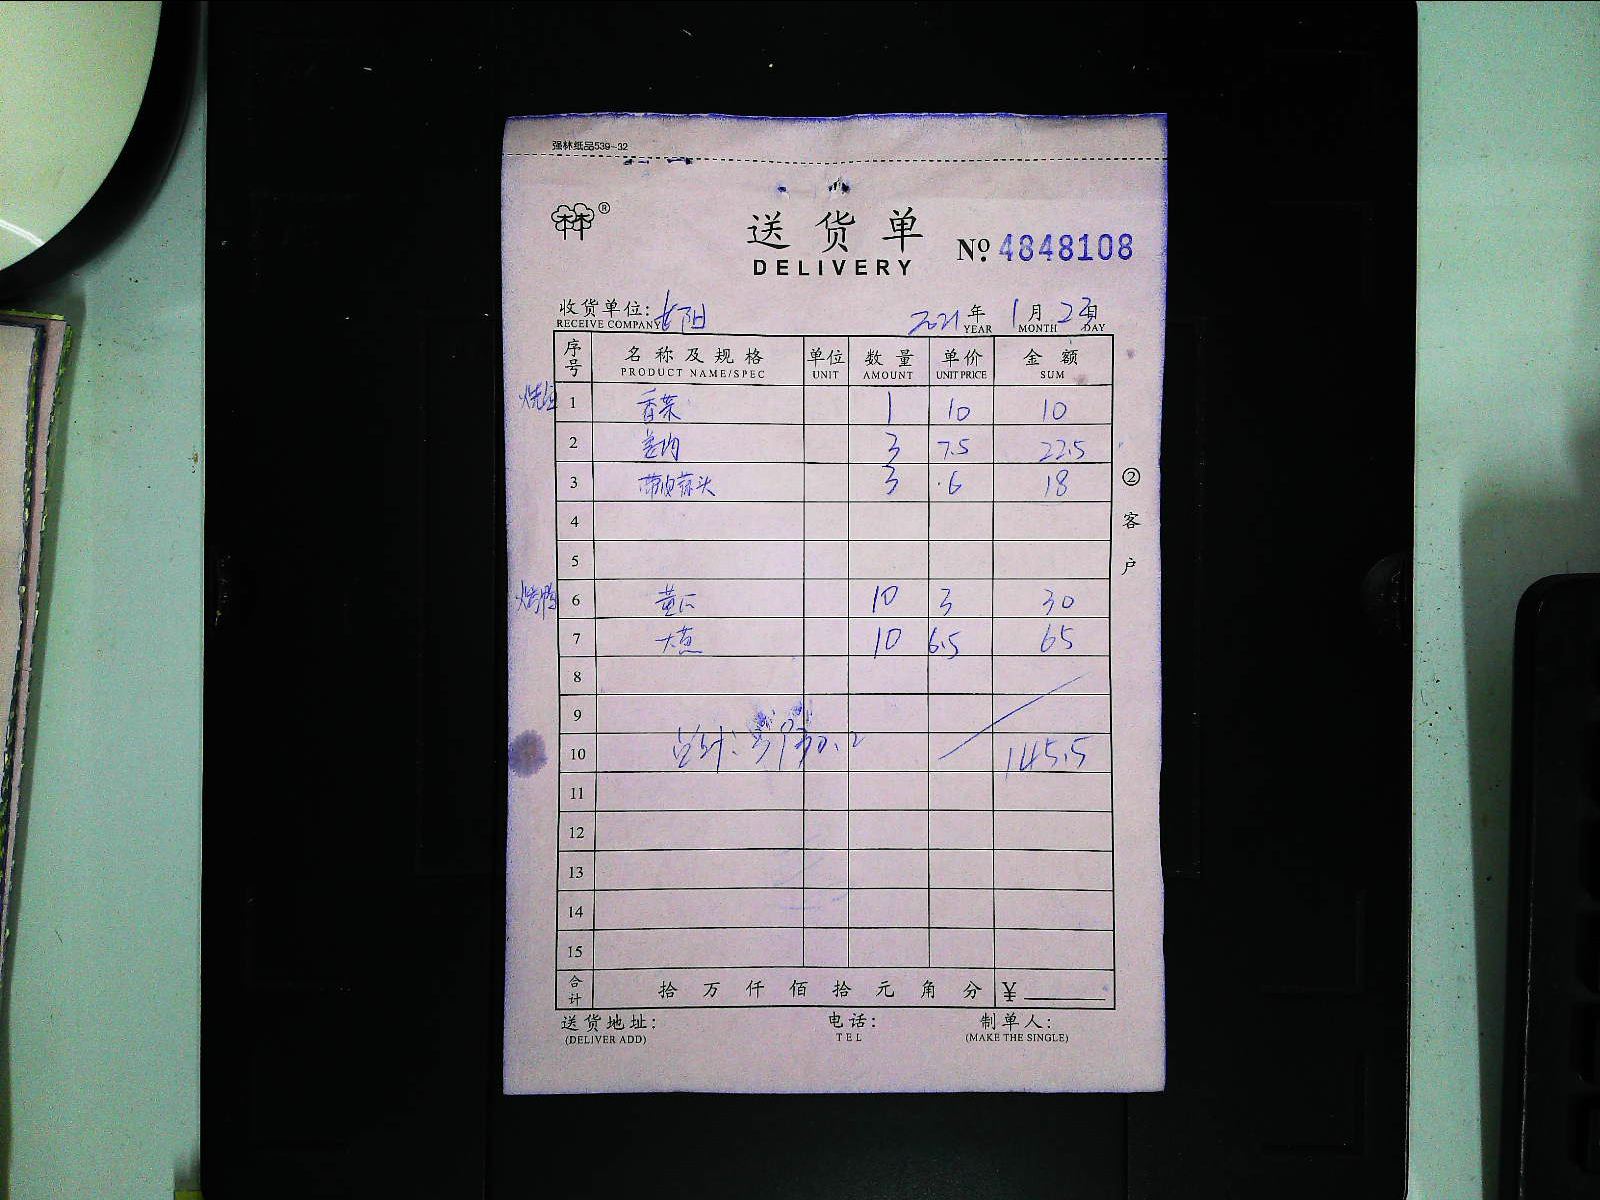 强林纸品539-32
®
送货单
DELIVERY
№ 4848108
收货单位: 长阳 2021年 1月 23日
RECEIVE COMPANY YEAR MONTH DAY
序号 名称及规格 单位 数量 单价 金额
PRODUCT NAME/SPEC UNIT AMOUNT UNIT PRICE SUM
1 香菜 1 10 10
2 姜肉 3 7.5 22.5
3 带皮蒜头 3 6 18
4
5
6 黄瓜 10 3 30
7 大葱 10 6.5 65
8
9
10 总计: 145.5
11
12
13
14
15
合计 拾万仟佰拾元角分 ¥
②客户
送货地址: 电话: 制单人:
(DELIVER ADD) TEL (MAKE THE SINGLE)